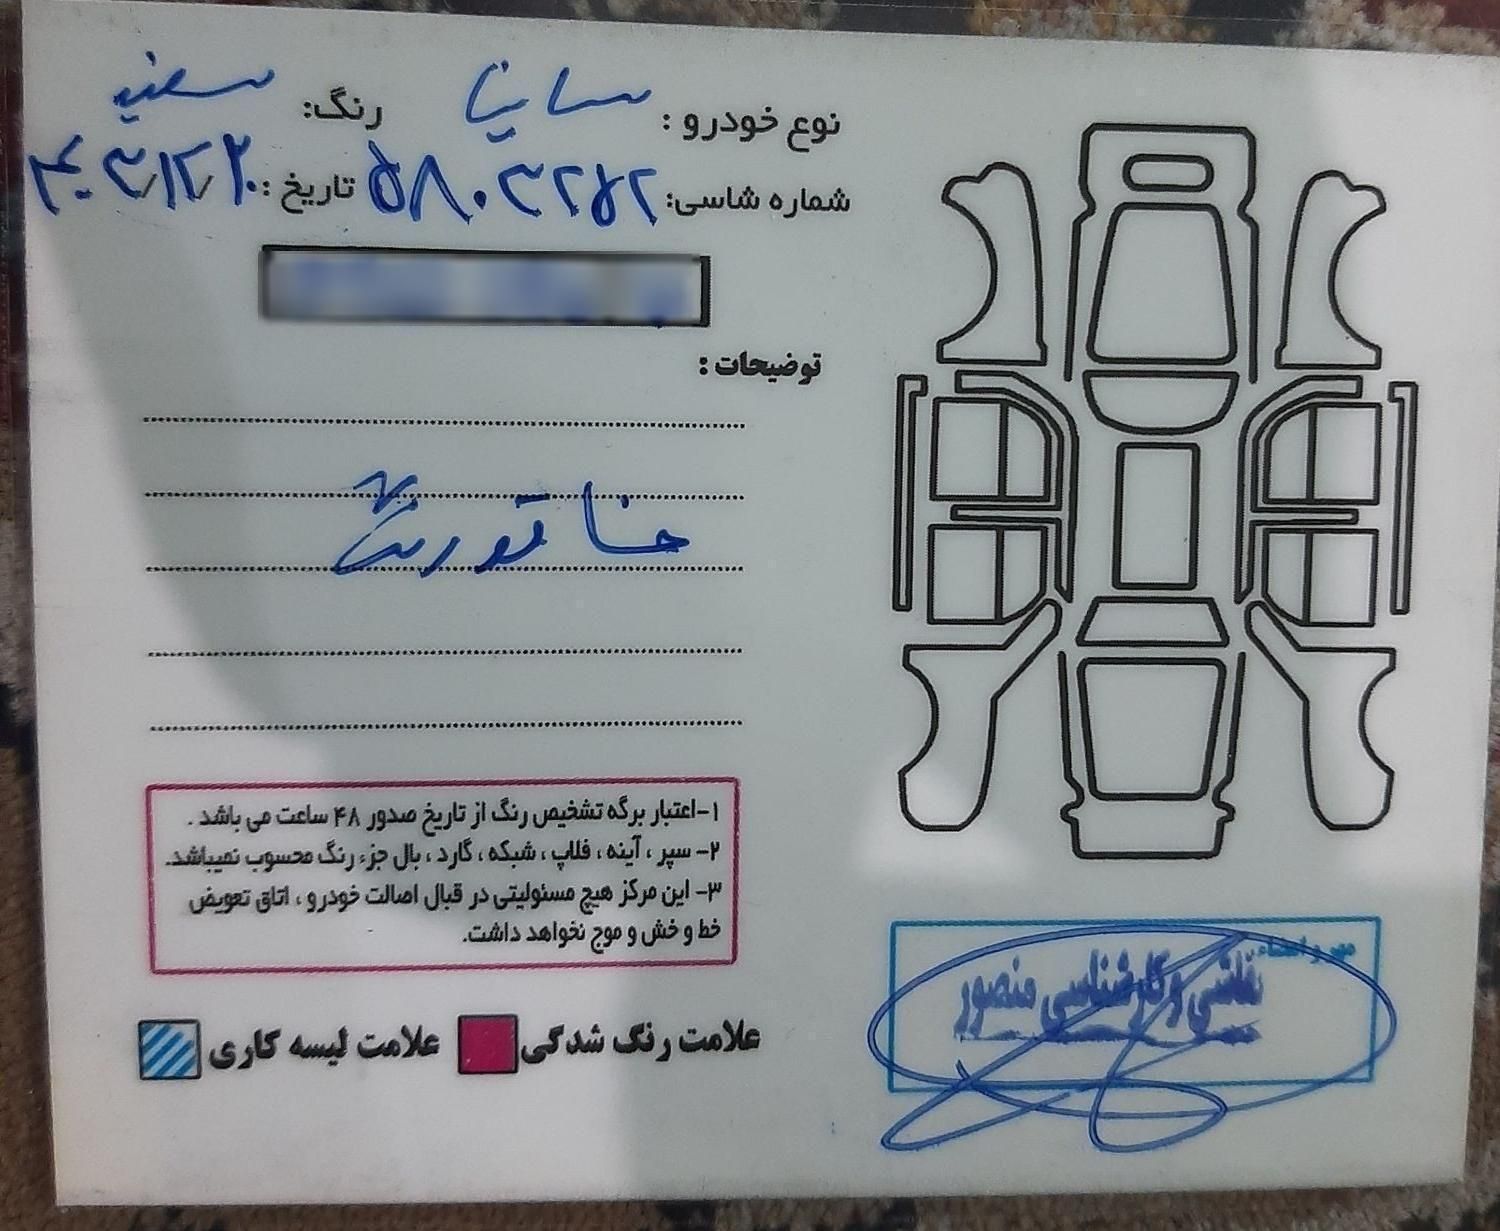 نوع خودرو : ساینا رنگ: سفید
شماره شاسی: ۵۸۰۳۲۵۲ تاریخ: ۴۰۳/۱۲/۲۰
توضیحات :
۱-اعتبار برگه تشخیص رنگ از تاریخ صدور ۴۸ ساعت می باشد .
۲- سپر ، آینه ، فلاپ ، شبکه ، گارد ، بال جزء رنگ محسوب نمیباشد.
۳- این مرکز هیچ مسئولیتی در قبال اصالت خودرو ، اتاق تعویض
خط و خش و موج نخواهد داشت.
علامت رنگ شدگی علامت لیسه کاری
مهر و امضاء
نقاشی و کارشناسی منصور